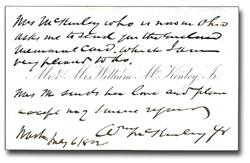 Mrs McKinley who is now in Ohio
asks me to send you the enclosed
memorial card, which I am
very pleased to do.
Mr & Mrs William McKinley Jr.
Mrs M sends her love and please
accept my sincere regards
Wash
Wm McKinley Jr